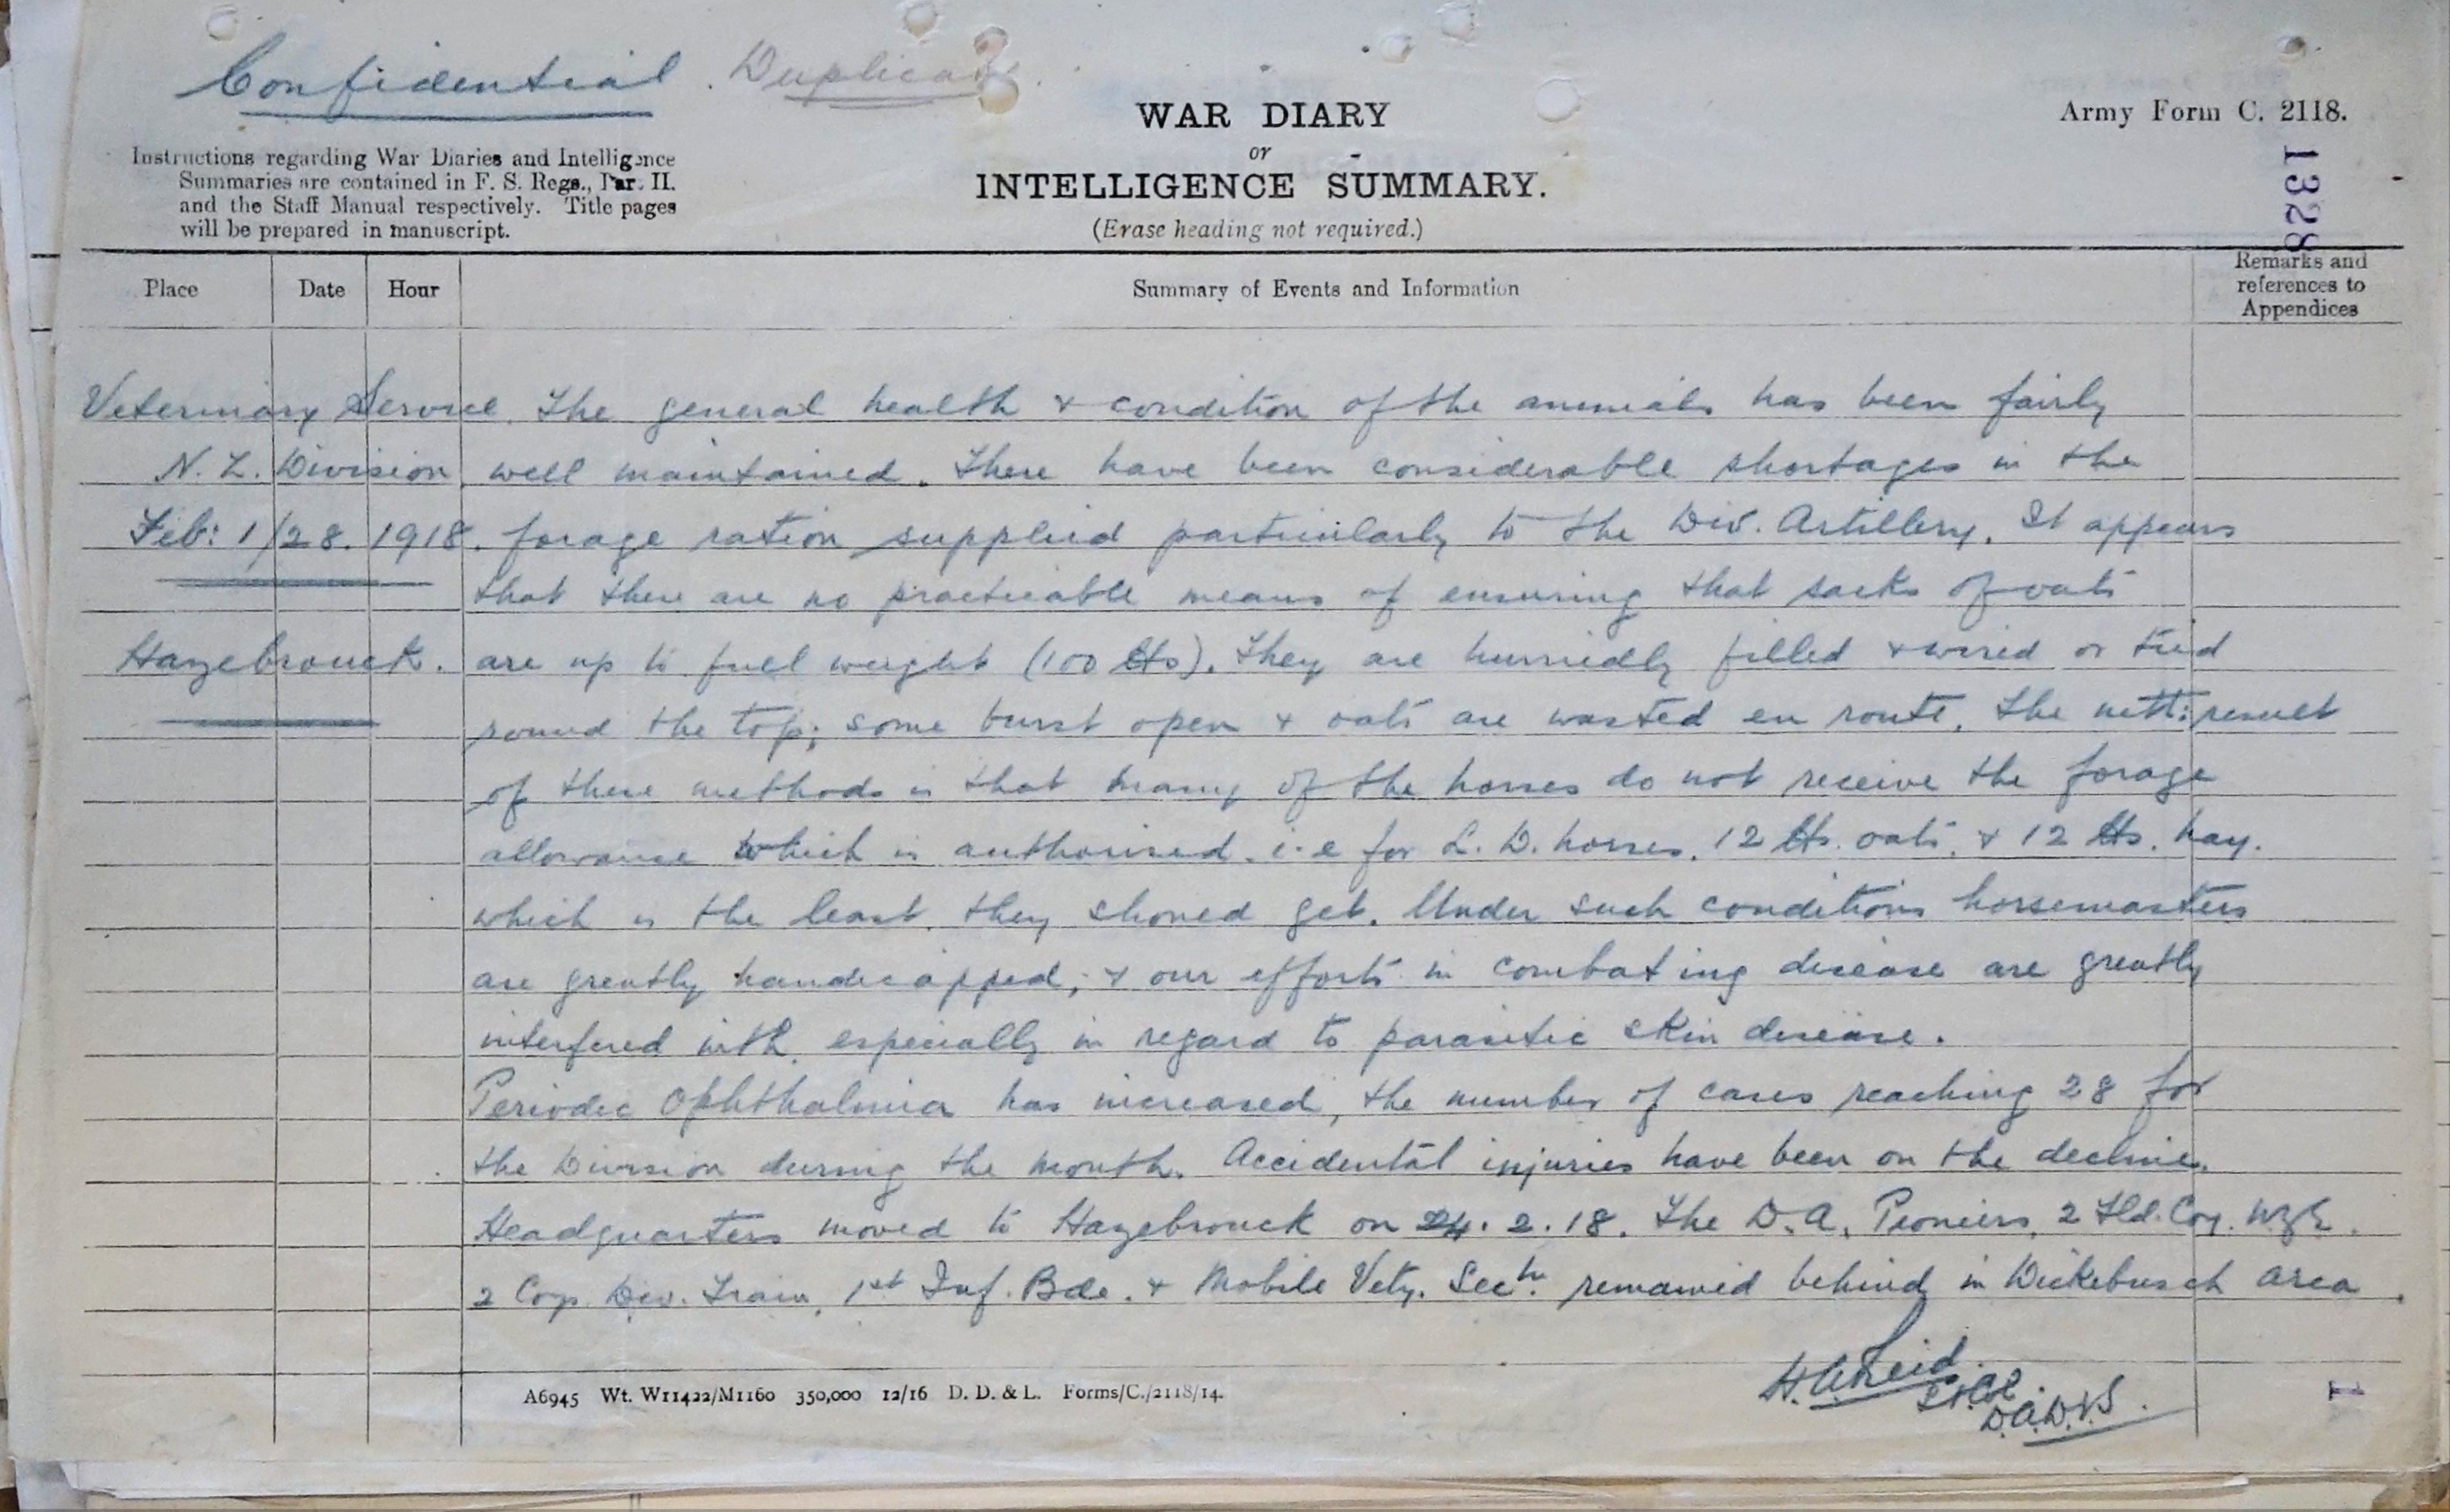 Confidential. Duplicate.
WAR DIARY
or
INTELLIGENCE SUMMARY.
(Erase heading not required.)
Army Form C. 2118.
1328
Instructions regarding War Diaries and Intelligence
Summaries are contained in F. S. Regs., Par. II.
and the Staff Manual respectively. Title pages
will be prepared in manuscript.
Place Date Hour Summary of Events and Information Remarks and references to Appendices
Veterinary Service. The general health & condition of the animals has been fairly
N. Z. Division. well maintained. There have been considerable shortages in the
Feb: 1/28. 1918. forage ration supplied particularly to the Div. Artillery. It appears
that there are no practicable means of ensuring that sacks of oats
Hazebrouck. are up to full weight (100 lbs). They are hurriedly filled & wired or tied
round the top; some burst open & oats are wasted en route. The nett: result
of these methods is that many of the horses do not receive the forage
allowance which is authorised. i.e for L. D. horses. 12 lbs. oats. & 12 lbs. hay.
which is the least they should get. Under such conditions horsemasters
are greatly handicapped; & our efforts in combating disease are greatly
interfered with, especially in regard to parasitic skin disease.
Periodic Ophthalmia has increased, the number of cases reaching 28 for
the Division during the month. Accidental injuries have been on the decline.
Headquarters moved to Hazebrouck on 24. 2. 18. The D.A. Pioneers, 2 Fld. Coy. NZE.
2 Coys. Div. Train, 1st Inf. Bde. & Mobile Vety. Sectn. remained behind in Dickebusch area.
H.A. Reid.
Lt. Col.
D.A.D.V.S.
A6945 Wt. W11422/M1160 350,000 12/16 D. D. & L. Forms/C./2118/14.
1